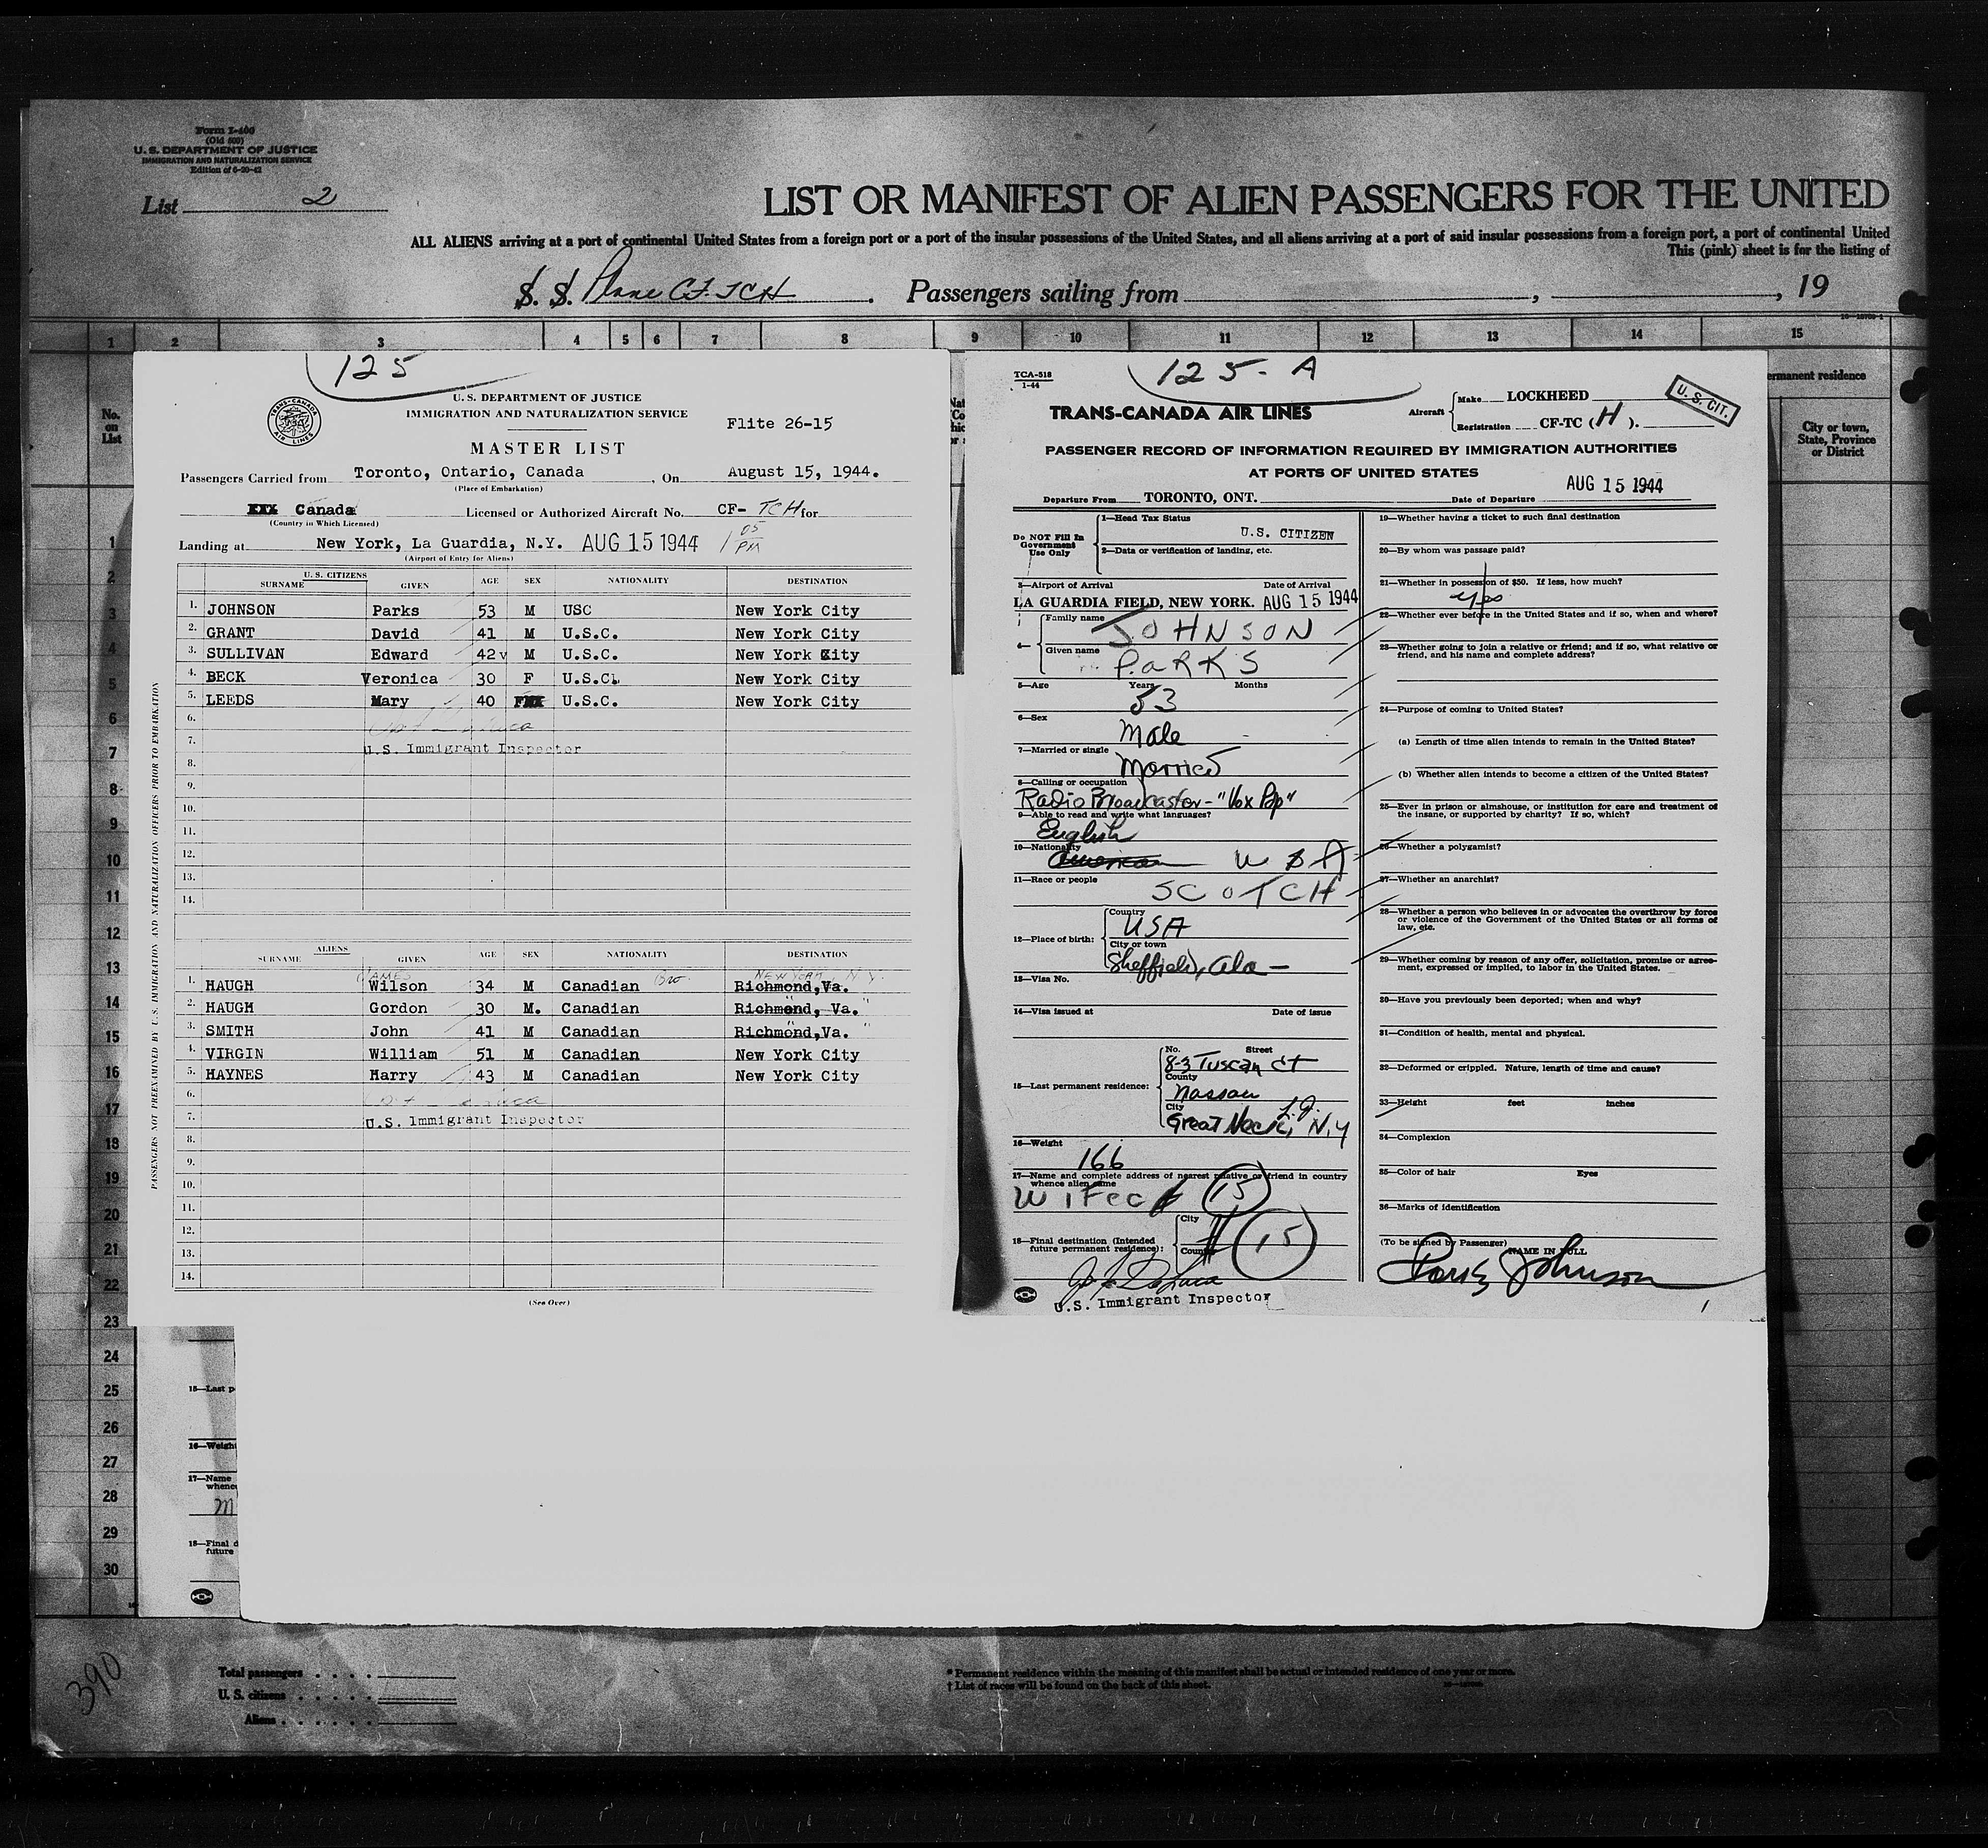 Form I-400
(Old 500)
U. S. DEPARTMENT OF JUSTICE
IMMIGRATION AND NATURALIZATION SERVICE
Edition of 6-20-42
List 2
LIST OR MANIFEST OF ALIEN PASSENGERS FOR THE UNITED
ALL ALIENS arriving at a port of continental United States from a foreign port or a port of the insular possessions of the United States, and all aliens arriving at a port of said insular possessions from a foreign port, a port of continental United
This (pink) sheet is for the listing of
S. S. Plane CF. TCH . Passengers sailing from , , 19
1 2 3 4 5 6 7 8 9 10 11 12 13 14 15
No. on List
ermanent residence
City or town, State, Province or District
1
2
3
4
5
6
7
8
9
10
11
12
13
14
15
16
17
18
19
20
21
22
23
24
25
26
27
28
29
30
125
TRANS-CANADA AIR LINES
U. S. DEPARTMENT OF JUSTICE
IMMIGRATION AND NATURALIZATION SERVICE
Flite 26-15
MASTER LIST
Passengers Carried from Toronto, Ontario, Canada , On August 15, 1944.
(Place of Embarkation)
XXX Canada Licensed or Authorized Aircraft No. CF- TCH for
(Country in Which Licensed)
Landing at New York, La Guardia, N.Y. AUG 15 1944 1 05 PM
(Airport of Entry for Aliens)
U. S. CITIZENS
SURNAME GIVEN AGE SEX NATIONALITY DESTINATION
1. JOHNSON Parks 53 M USC New York City
2. GRANT David 41 M U.S.C. New York City
3. SULLIVAN Edward 42v M U.S.C. New York City
4. BECK Veronica 30 F U.S.C. New York City
5. LEEDS Mary 40 F U.S.C. New York City
6.
7. U.S. Immigrant Inspector
8.
9.
10.
11.
12.
13.
14.
ALIENS
SURNAME GIVEN AGE SEX NATIONALITY DESTINATION
JAMES NEW YORK, N.Y.
1. HAUGH Wilson 34 M Canadian Richmond,Va.
2. HAUGH Gordon 30 M. Canadian Richmond, Va. "
3. SMITH John 41 M Canadian Richmond,Va. "
4. VIRGIN William 51 M Canadian New York City
5. HAYNES Harry 43 M Canadian New York City
6.
7. U.S. Immigrant Inspector
8.
9.
10.
11.
12.
13.
14.
(See Over)
PASSENGERS NOT PREEXAMINED BY U.S. IMMIGRATION AND NATURALIZATION OFFICERS PRIOR TO EMBARKATION
TCA-518
1-44
125-A
TRANS-CANADA AIR LINES
Aircraft Make LOCKHEED
Registration CF-TC (H).
U. S. CIT.
PASSENGER RECORD OF INFORMATION REQUIRED BY IMMIGRATION AUTHORITIES
AT PORTS OF UNITED STATES
Departure From TORONTO, ONT. Date of Departure AUG 15 1944
Do NOT Fill In Government Use Only
1—Head Tax Status U.S. CITIZEN
2—Data or verification of landing, etc.
3—Airport of Arrival Date of Arrival
LA GUARDIA FIELD, NEW YORK. AUG 15 1944
4— Family name JOHNSON
Given name PARKS
5—Age Years Months
53
6—Sex Male
7—Married or single Married
8—Calling or occupation
Radio Broadcaster - "Vox Pop"
9—Able to read and write what languages?
English
10—Nationality American USA
11—Race or people SCOTCH
12—Place of birth: Country USA
City or town
Sheffield, Ala —
13—Visa No.
14—Visa issued at Date of issue
15—Last permanent residence: No. Street
8-3 Tuscan Ct
County
Nassau
City
Great Neck, L.I. N.Y
16—Weight 166
17—Name and complete address of nearest relative or friend in country whence alien came
Wife c/o (15)
18—Final destination (Intended future permanent residence): City County # (15)
J. F. DeLuca
U.S. Immigrant Inspector
19—Whether having a ticket to such final destination
20—By whom was passage paid?
21—Whether in possession of $50. If less, how much?
yes
22—Whether ever before in the United States and if so, when and where?
23—Whether going to join a relative or friend; and if so, what relative or friend, and his name and complete address?
24—Purpose of coming to United States?
(a) Length of time alien intends to remain in the United States?
(b) Whether alien intends to become a citizen of the United States?
25—Ever in prison or almshouse, or institution for care and treatment of the insane, or supported by charity? If so, which?
26—Whether a polygamist?
27—Whether an anarchist?
28—Whether a person who believes in or advocates the overthrow by force or violence of the Government of the United States or all forms of law, etc.
29—Whether coming by reason of any offer, solicitation, promise or agreement, expressed or implied, to labor in the United States.
30—Have you previously been deported; when and why?
31—Condition of health, mental and physical.
32—Deformed or crippled. Nature, length of time and cause?
33—Height feet inches
34—Complexion
35—Color of hair Eyes
36—Marks of identification
(To be signed by Passenger) NAME IN FULL
Parks Johnson
15—Last p
16—Weight
17—Name
whence
M
18—Final d
future
390
Total passengers . . . .
U. S. citizens . . . . .
Aliens . . . . . .
* Permanent residence within the meaning of this manifest shall be actual or intended residence of one year or more.
† List of races will be found on the back of this sheet.